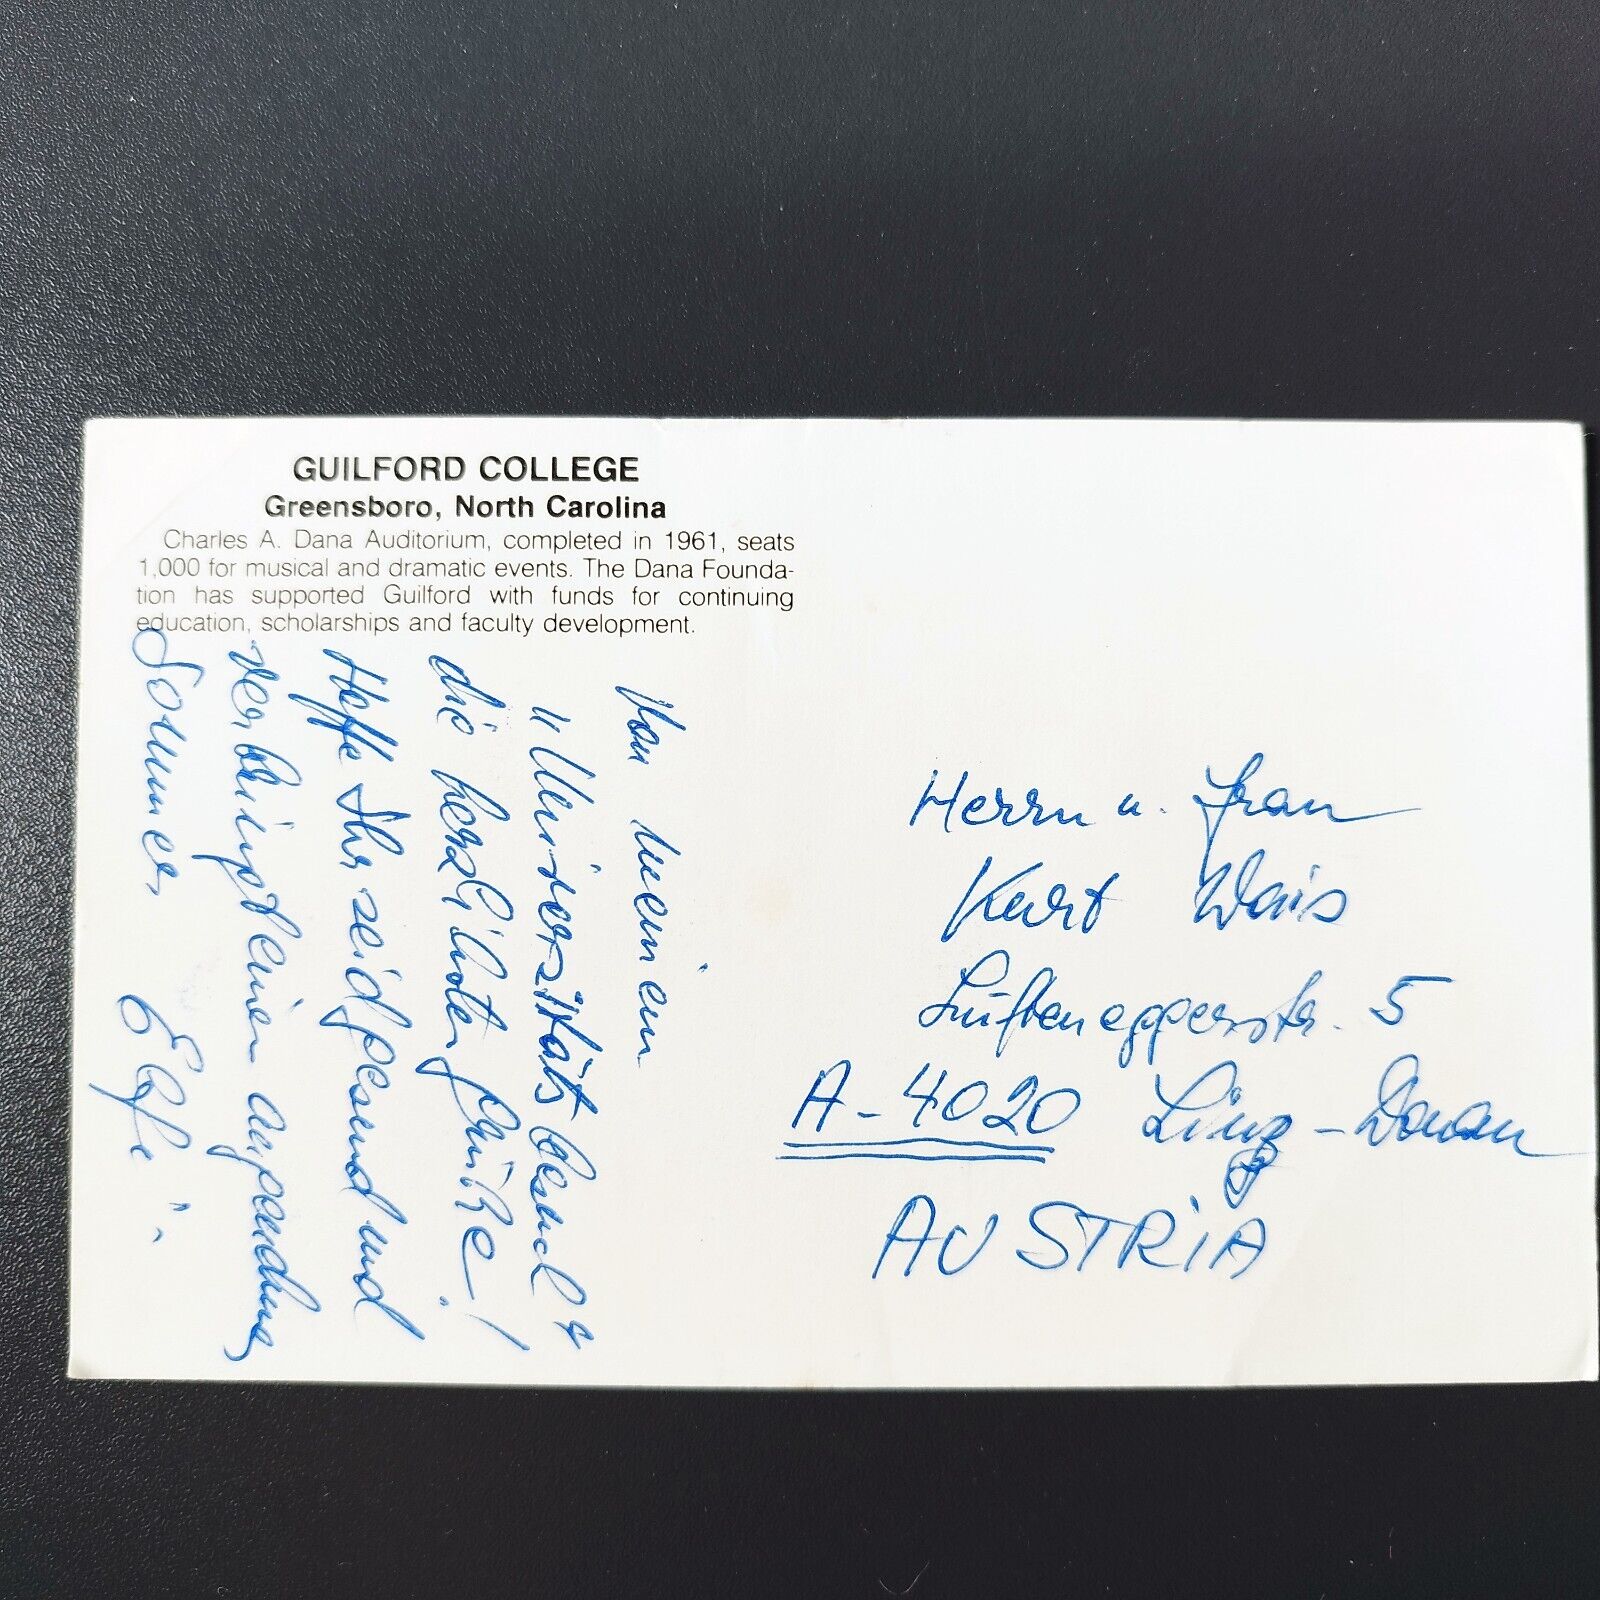 GUILFORD COLLEGE
Greensboro, North Carolina
Charles A. Dana Auditorium, completed in 1961, seats
1,000 for musical and dramatic events. The Dana Founda-
tion has supported Guilford with funds for continuing
education, scholarships and faculty development.
Von meinem
"Universitätsbesuch"
die herzlichsten Grüße!
Hoffe Ihr seid gesund und
verbringt einen angenehmen
Sommer
Herrn u. Frau
Kurt Wais
Lufteneggerstr. 5
A-4020 Linz-Donau
AUSTRIA